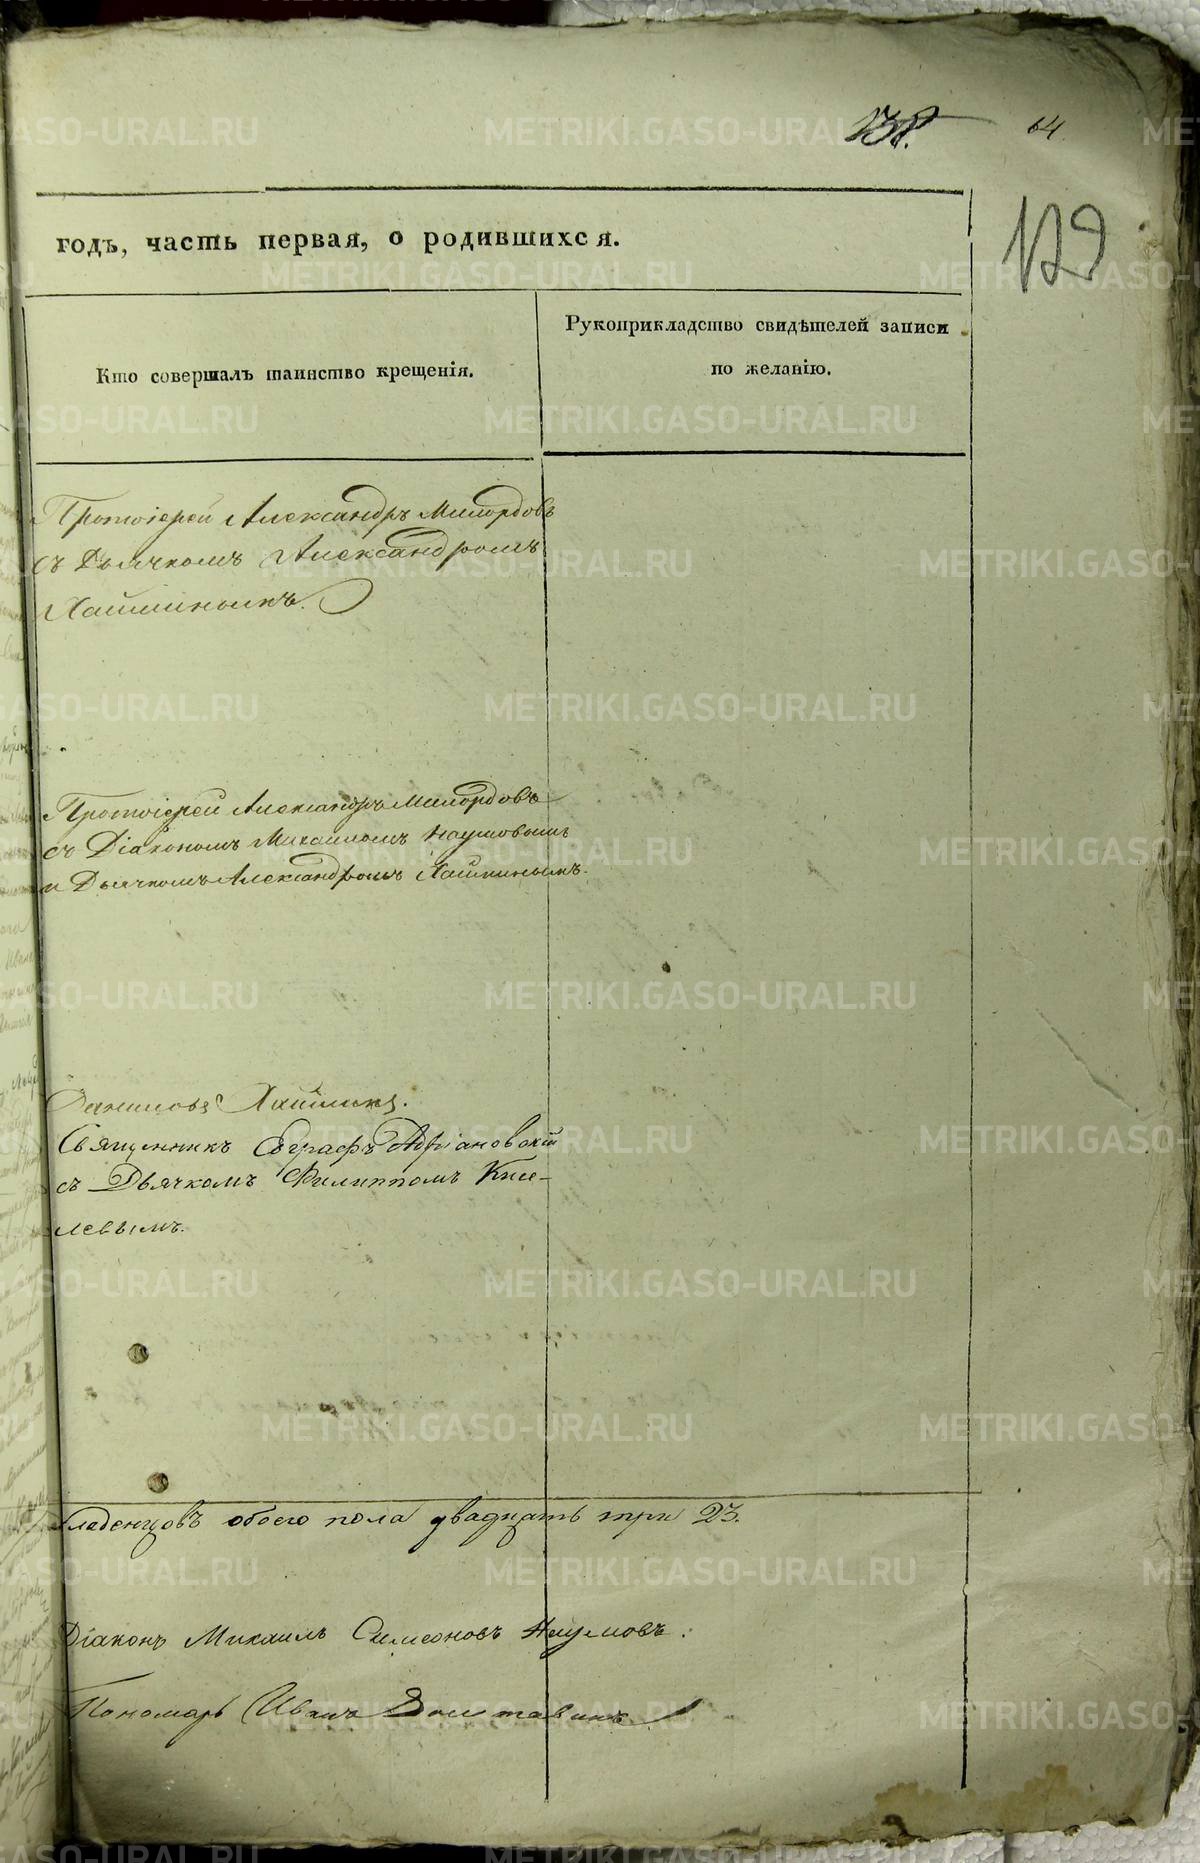 138.
64
129
годъ, часть первая, о родившихся.
Кто совершалъ таинство крещенія.
Рукоприкладство свидѣтелей записи
по желанію.
Протоіерей Александръ Милордовъ
съ Дьячкомъ Александромъ
Хайминымъ.
Протоіерей Александръ Милордовъ
съ Діакономъ Михаиломъ Наумовымъ
и Дьячкомъ Александромъ
Священникъ Евграфъ Адріановскій
съ Дьячкомъ Филиппомъ Кисе-
левымъ.
младенцовъ обоего пола двадцать три 23.
Діаконъ Михаилъ Симеоновъ Наумовъ.
Пономарь Иванъ
METRIKI.GASO-URAL.RU